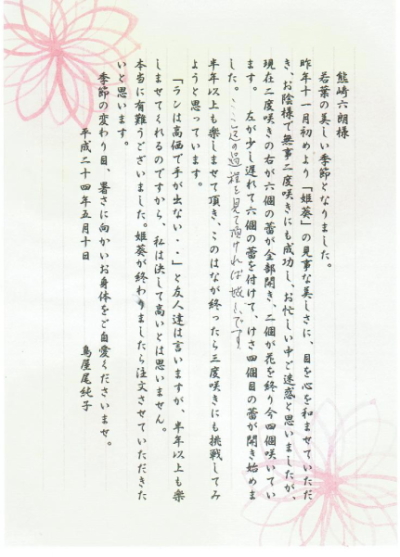 熊崎六朗様
若葉の美しい季節となりました。
昨年十一月初めより「姫葵」の見事な美しさに、目を心を和ませていただ
き、お陰様で無事二度咲きにも成功し、お忙しい中ご迷惑と思いましたが、
現在二度咲きの右が六個の蕾が全部開き、二個が花を終り今四個咲いてい
ます。 左が少し遅れて六個の蕾を付けて、けさ四個目の蕾が開き始めま
した。ここ迄の過程を見て頂ければ嬉しいです
半年以上も楽しませて頂き、このはなが終ったら三度咲きにも挑戦してみ
ようと思っています。
「ランは高価で手が出ない・・」と友人達は言いますが、半年以上も楽
しませてくれるのですから、私は決して高いとは思いません。
本当に有難うございました。姫葵が終わりましたら注文させていただきた
いと思います。
季節の変わり目、暑さに向かいお身体をご自愛くださいませ。
平成二十四年五月十日
鳥屋尾純子